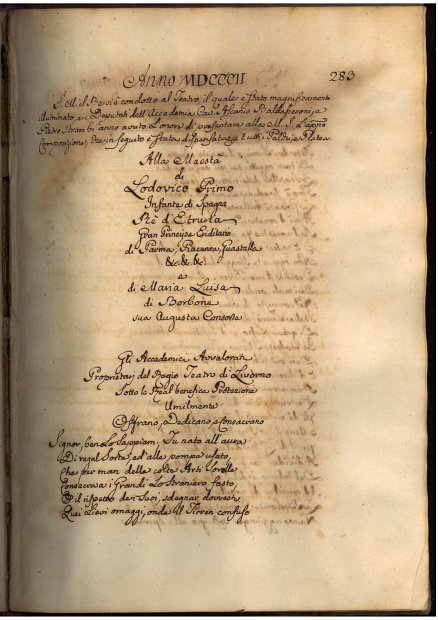 Anno MDCCCII
283
S. M. il Re si è condotto al Teatro, il quale è stato magnificamente
illuminato, ed i Deputati dell'Accademia Cav. Ascanio Baldasseroni, a
Pietro Stramb anno avuto l'onore di presentare alla M. S.
Composizione, che in seguito è stata dispensata tutti i Palchi, e Platea.
Alla Maestà
di
Lodovico Primo
Infante di Spagna
Rè d'Etruria
Gran Principe Ereditario
di Parma, Piacenza, Guastalla
&c. &c. &c.
e
di Maria Luisa
di Borbone
sua Augusta Consorte
Gli Accademici Avvalorati
Proprietari del Regio Teatro di Livorno
Sotto la Real benefica Protezione
Umilmente
Offrano, Dedicano, e Consacrano
Signor, ben lo sappiam; Tu nato all'aura
Di regal Sorte, ed alle pompe usato,
Che per man delle colte Arti Sorelle
Consacrava i Grandi lo Straniero fasto,
E il rispetto dei Tuoi, sdegnar dovresti
Quei lievi omaggi, onde il Tirren confuso